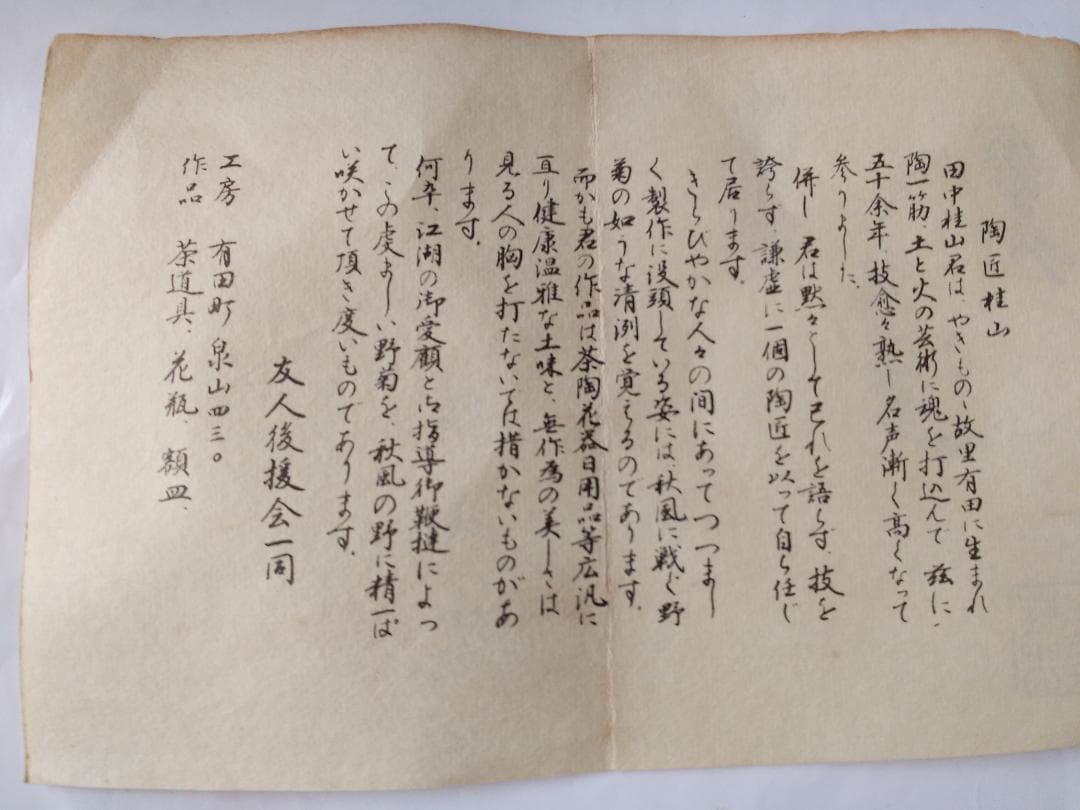 陶匠桂山
田中桂山君は、やきものゝ故里有田に生まれ
陶一筋、土と火の芸術に魂を打込んで茲に、
五十余年、技愈々熟し名声漸く高くなって
参りました。
併し 君は黙々として己れを語らず、技を
誇らず、謙虚に一個の陶匠を以って自ら任じ
て居ります。
きらびやかな人々の間にあってつつまし
く製作に没頭している姿には、秋風に戦ぐ野
菊の如うな清冽を覚えるのであります。
而かも君の作品は茶陶花器日用品等広汎に
亘り健康温雅な土味と、無作為の美しさは
見る人の胸を打たないでは措かないものがあ
ります。
何卒、江湖の御愛顧と御指導御鞭撻によっ
て、この虔ましい野菊を、秋風の野に精一ぱ
い咲かせて頂き度いものであります。
友人後援会一同
工房 有田町泉山四三〇
作品 茶道具、花瓶、額皿、